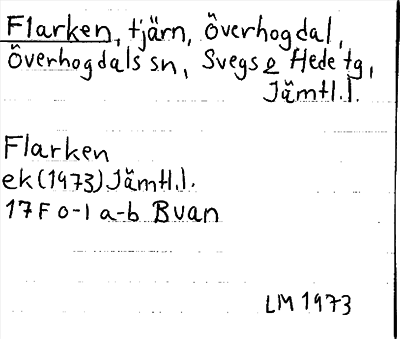 Flarken, tjärn, Överhogdal,
Överhogdals sn, Svegs o Hede tg,
Jämtl.l.
Flarken
ek (1973) Jämtl.l.
17F 0-1 a-b Buan
LM 1973